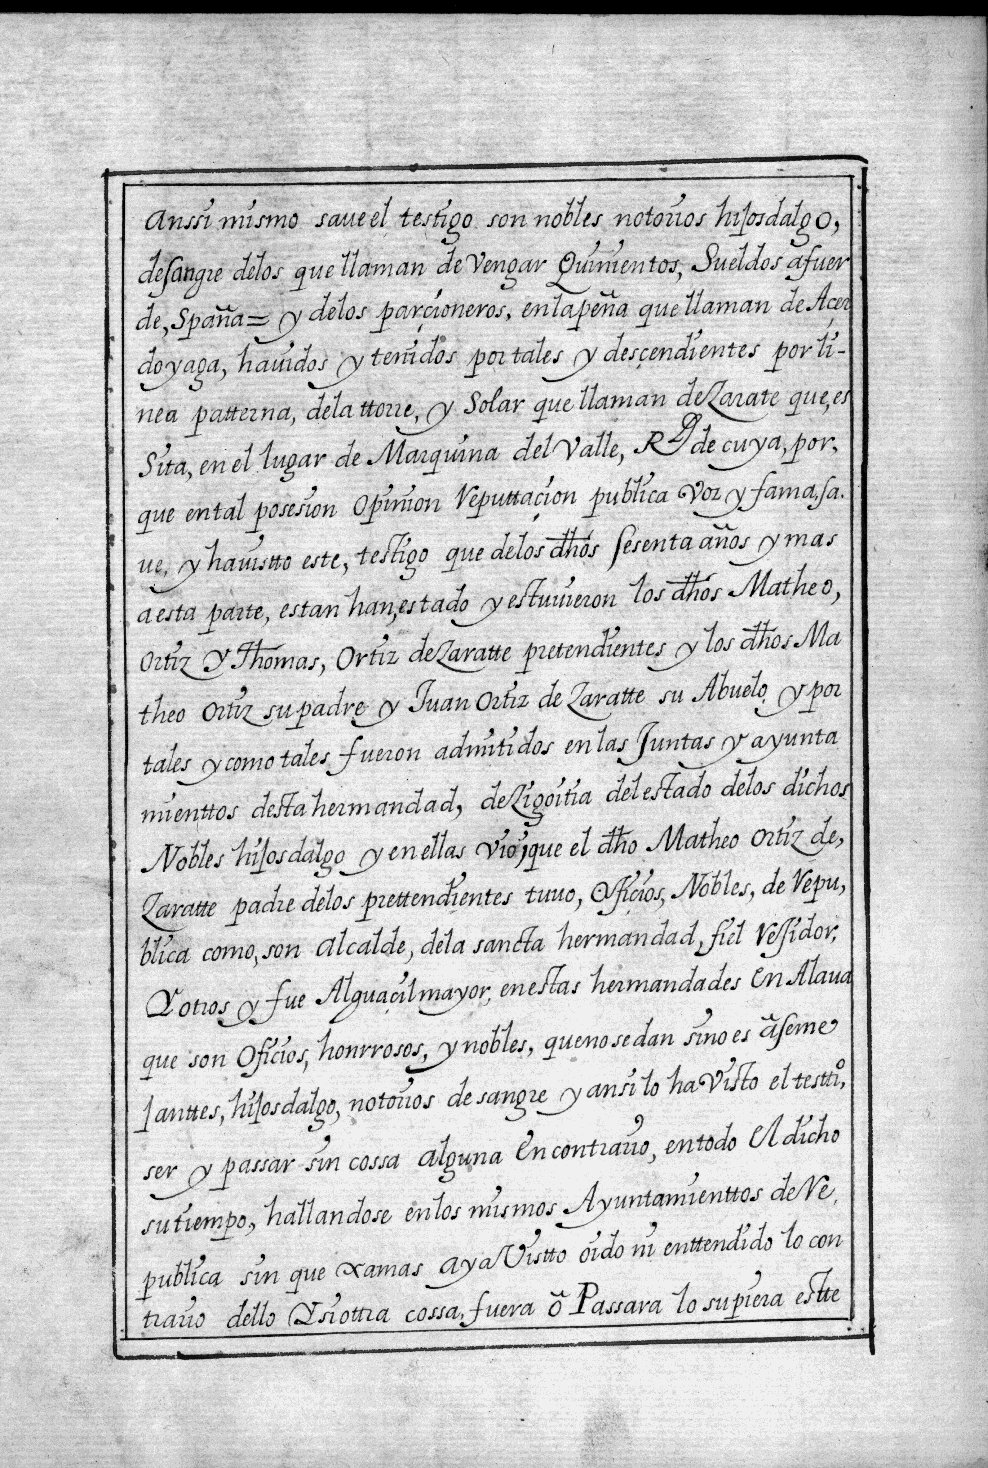 Anssi mismo saue el testigo son nobles notorios hijosdalgo,
desangre delos que llaman de Vengar Quinientos, Sueldos afuer
de, España= y delos parçioneros, enlapeña que llaman de Açer
doyaga, hauidos y tenidos por tales y desçendientes por li-
nea patterna, dela ttorre, y Solar que llaman de Zarate que, es
Sita, en el lugar de Marquina del Valle, de cuya, por,
que ental posesion Opinion Reputtaçion publica Voz y fama, sa.
ue, y hauistto este, testigo que delos dhos sesenta años y mas
a esta parte, estan han, estado y estuuieron los dhos Matheo,
Ortiz Y Thomas, Ortiz de Zaratte pretendientes y los dhos Ma
theo Ortiz su padre y Juan Ortiz de Zaratte su Abuelo y por
tales y como tales fueron admitidos en las Juntas y ayunta
mienttos desta hermandad, de Zigoitia del estado delos dichos
Nobles hijosdalgo y en ellas vio, que el dho Matheo Ortiz de,
Zaratte padre delos prettendientes tuuo, Ofiçios, Nobles, de Repu,
blica como, son Alcalde, dela sancta hermandad, fiel Residor,
Y otros y fue Alguaçil mayor, en estas hermandades En Alaua
que son Ofiçios, honrrosos, y nobles, que no se dan sino es aseme
janttes, hijosdalgo, notorios de sangre y ansi lo ha Visto el testtiº,
ser y passar sin cossa alguna En contrario, en todo El dicho
su tiempo, hallandose en los mismos Ayuntamienttos de Re,
publica sin que xamas aya Vistto oido ni enttendido lo con
trario dello Y si ottra cossa, fuera ô Passara lo supiera estte